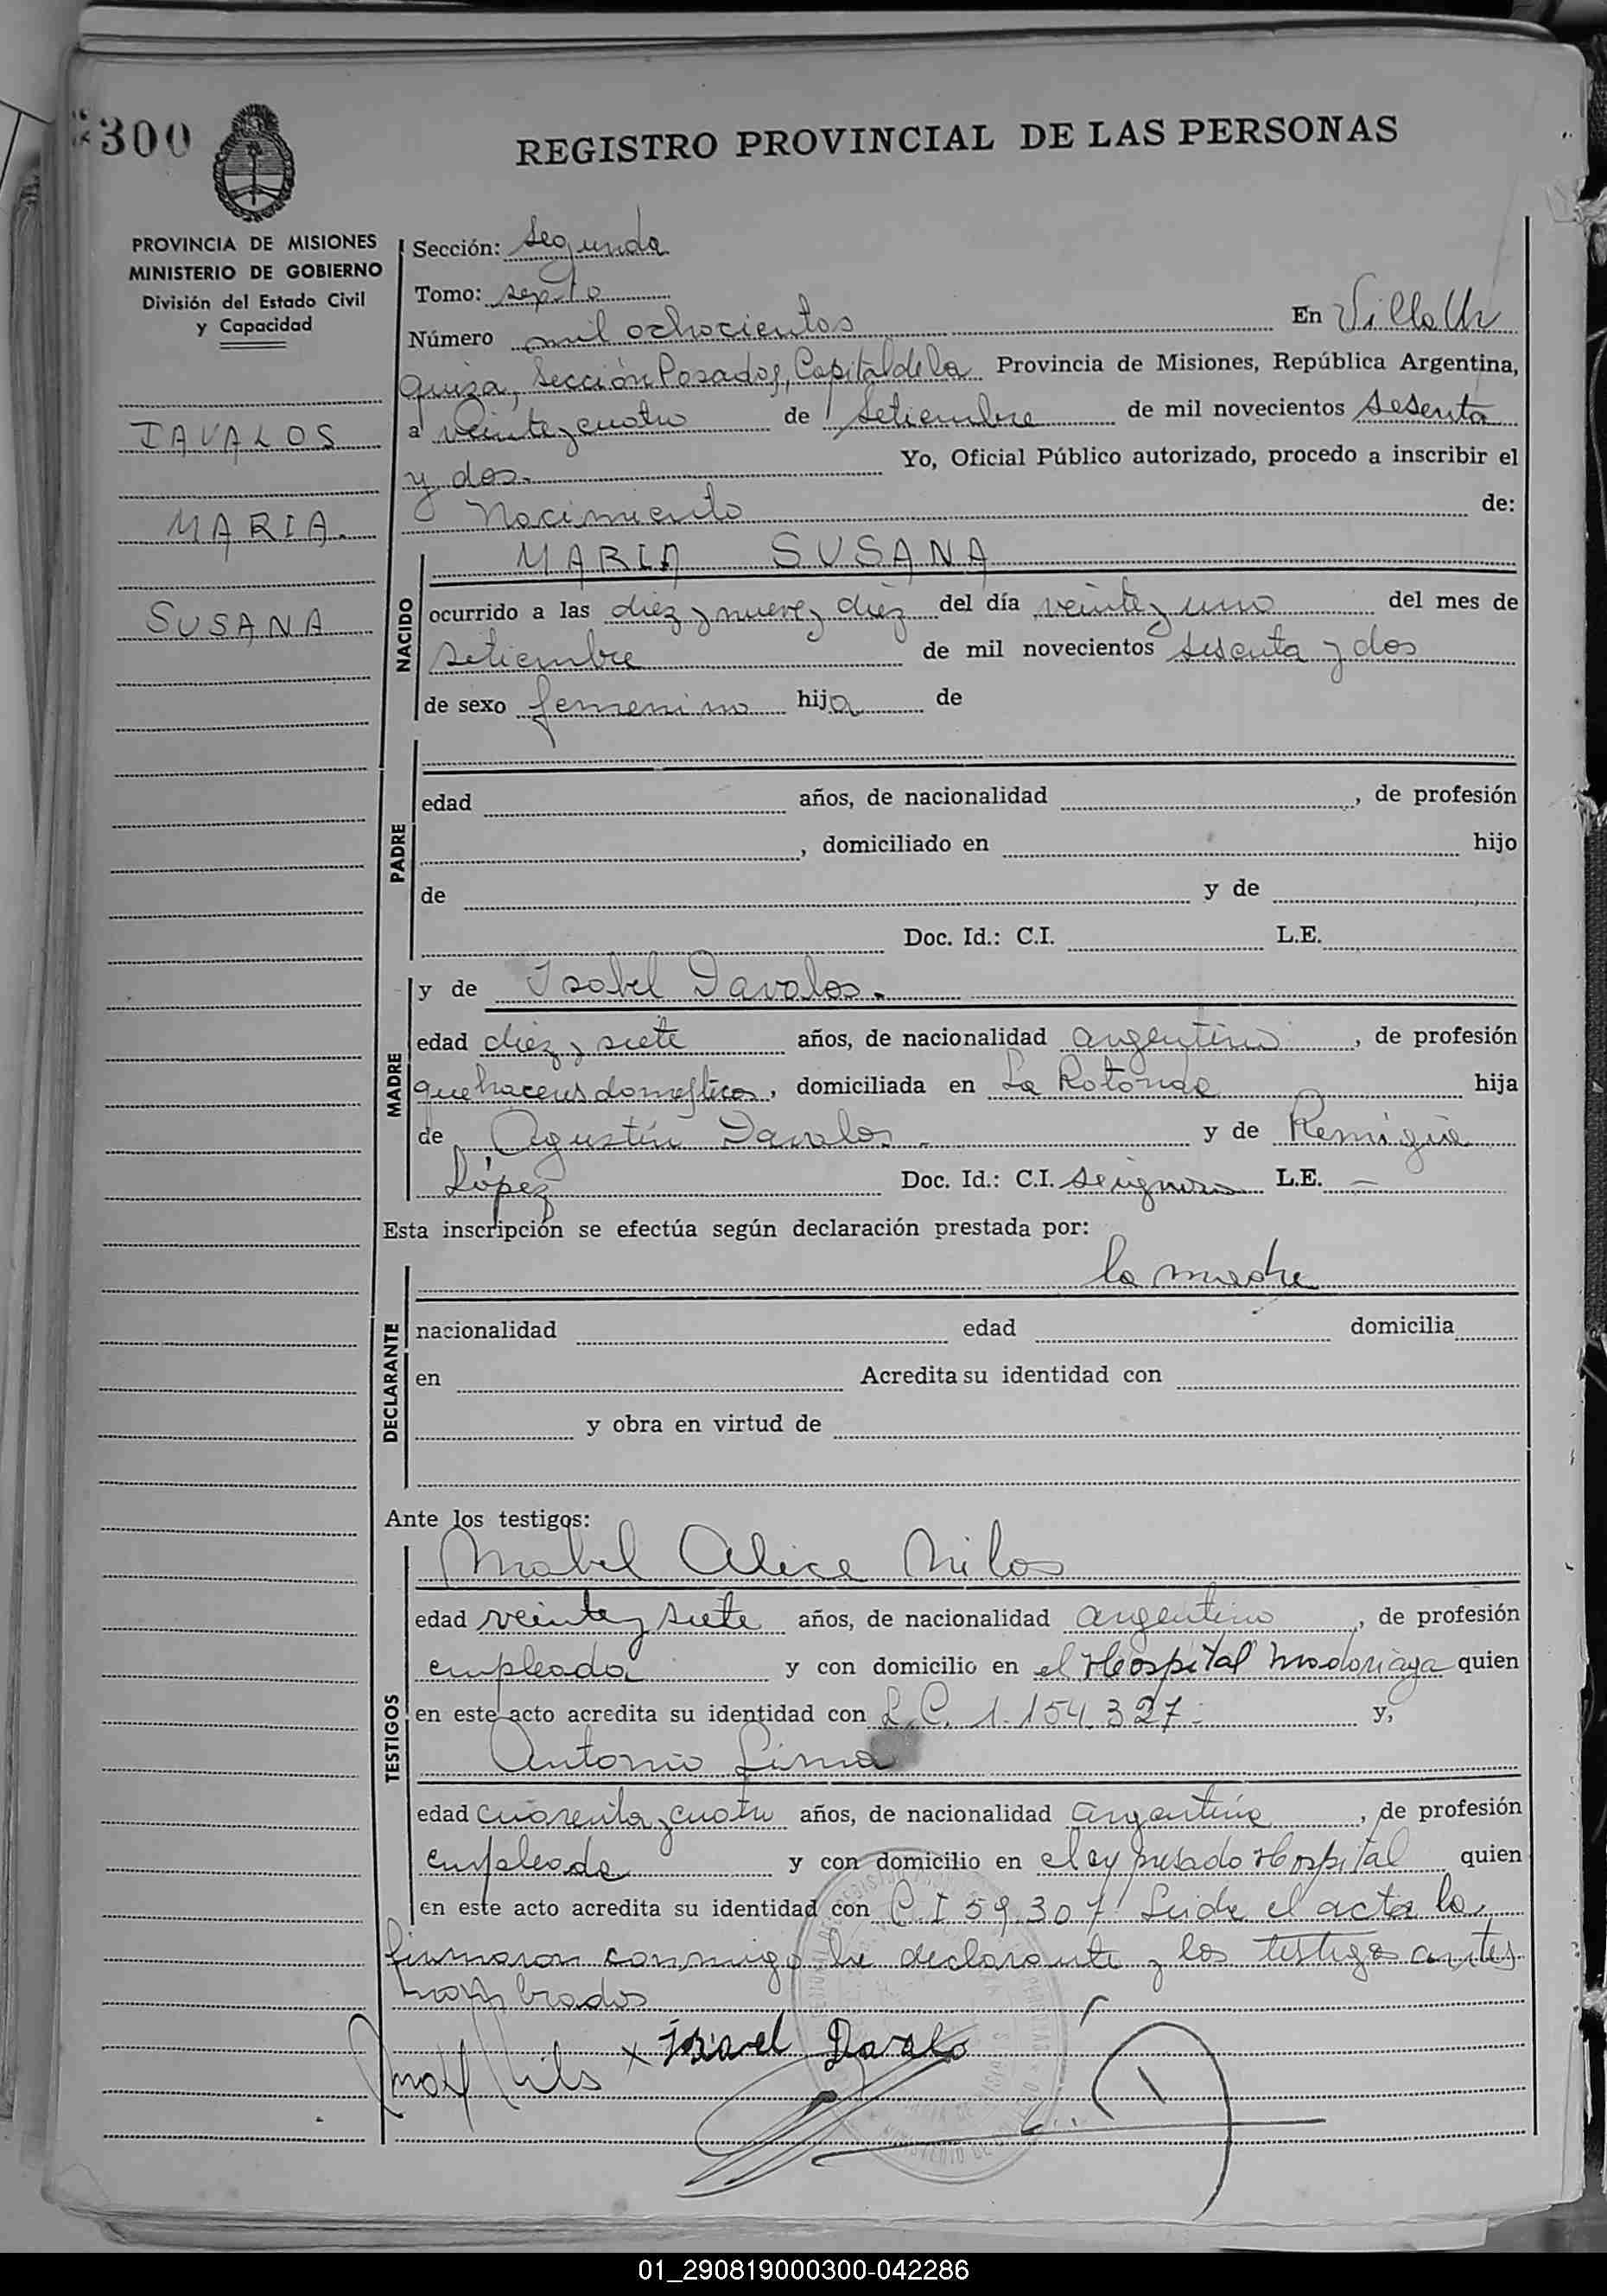 300
REGISTRO PROVINCIAL DE LAS PERSONAS
PROVINCIA DE MISIONES
MINISTERIO DE GOBIERNO
División del Estado Civil
y Capacidad
DAVALOS
MARIA.
SUSANA
Sección: Segunda
Tomo: septo
Número mil ochocientos En Villa Ur
quiza, Sección Posadas, Capital de la Provincia de Misiones, República Argentina,
a veinte y cuatro de Setiembre de mil novecientos sesenta
y dos. Yo, Oficial Público autorizado, procedo a inscribir el
Nacimiento de:
NACIDO
MARIA SUSANA
ocurrido a las diez y nueve y diez del día veinte y uno del mes de
setiembre de mil novecientos sesenta y dos
de sexo femenino hija de
PADRE
edad años, de nacionalidad , de profesión
, domiciliado en hijo
de y de
Doc. Id.: C.I. L.E.
MADRE
y de Isabel Davalos.
edad diez y siete años, de nacionalidad argentina , de profesión
quehaceres domesticos, domiciliada en La Rotonda hija
de Agustín Davalos - y de Remigia
López Doc. Id.: C.I. se ignora L.E. —
Esta inscripción se efectúa según declaración prestada por:
DECLARANTE
la madre
nacionalidad edad domicilia
en Acredita su identidad con
y obra en virtud de
Ante los testigos:
TESTIGOS
Mabel Alice Nilos
edad veinte y siete años, de nacionalidad argentina , de profesión
empleada y con domicilio en el Hospital Madariaga quien
en este acto acredita su identidad con L.C. 1.154.327.- y,
Antonio Lima
edad cuarenta y cuatro años, de nacionalidad argentina , de profesión
empleado y con domicilio en el expresado Hospital quien
en este acto acredita su identidad con C.I 59.307 Leida el acta la
firmaron conmigo la declarante y los testigos antes
nombrados
x Isavel Davalo
01_290819000300-042286